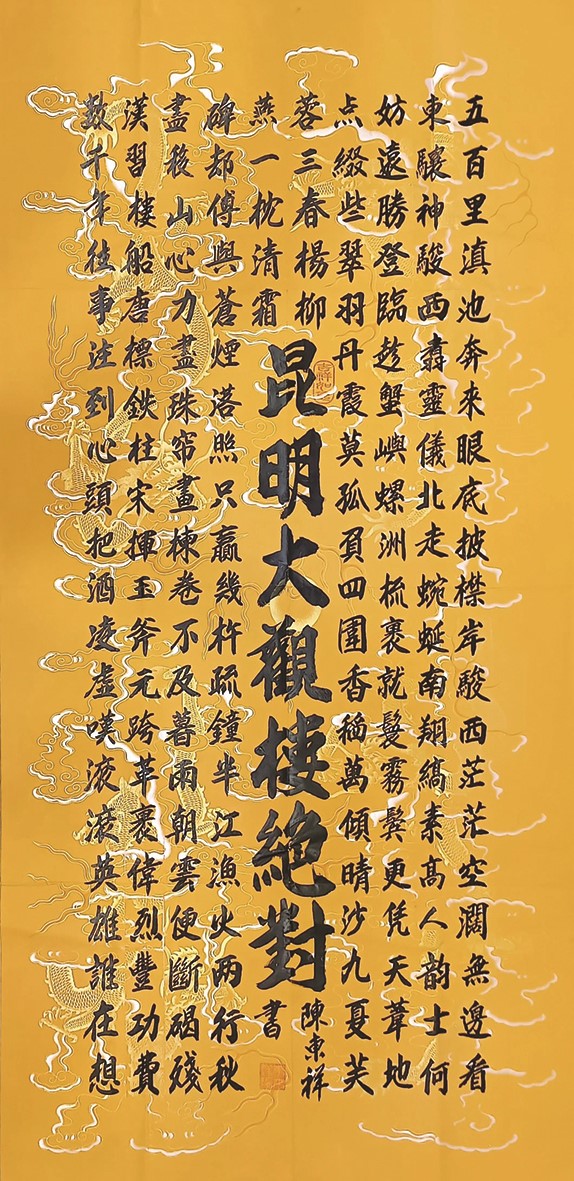 五百里滇池奔來眼底披襟岸駿西茫茫空濶無邊看
東驤神駿西翥靈儀北走蜿蜒南翔縞素髙人韵士何
妨遠勝登臨趁蟹嶼螺洲梳裹就髮霧鬢更凭天葦地
点綴些翠羽丹霞莫孤負四圍香稲萬傾晴沙九夏芙
蓉三春楊柳
昆明大觀樓絶對
數千年往事注到心頭把酒凌虛嘆滚滚英雄誰在想
漢習樓船唐標鉄柱宋揮玉斧元跨革裹偉烈豐功費
盡後山心力盡珠帘畫棟卷不及暮雨朝雲便斷碣殘
碑都傅與蒼煙落照只贏幾杵疏鐘半江漁火两行秋
燕一枕清霜
陳東祥
書